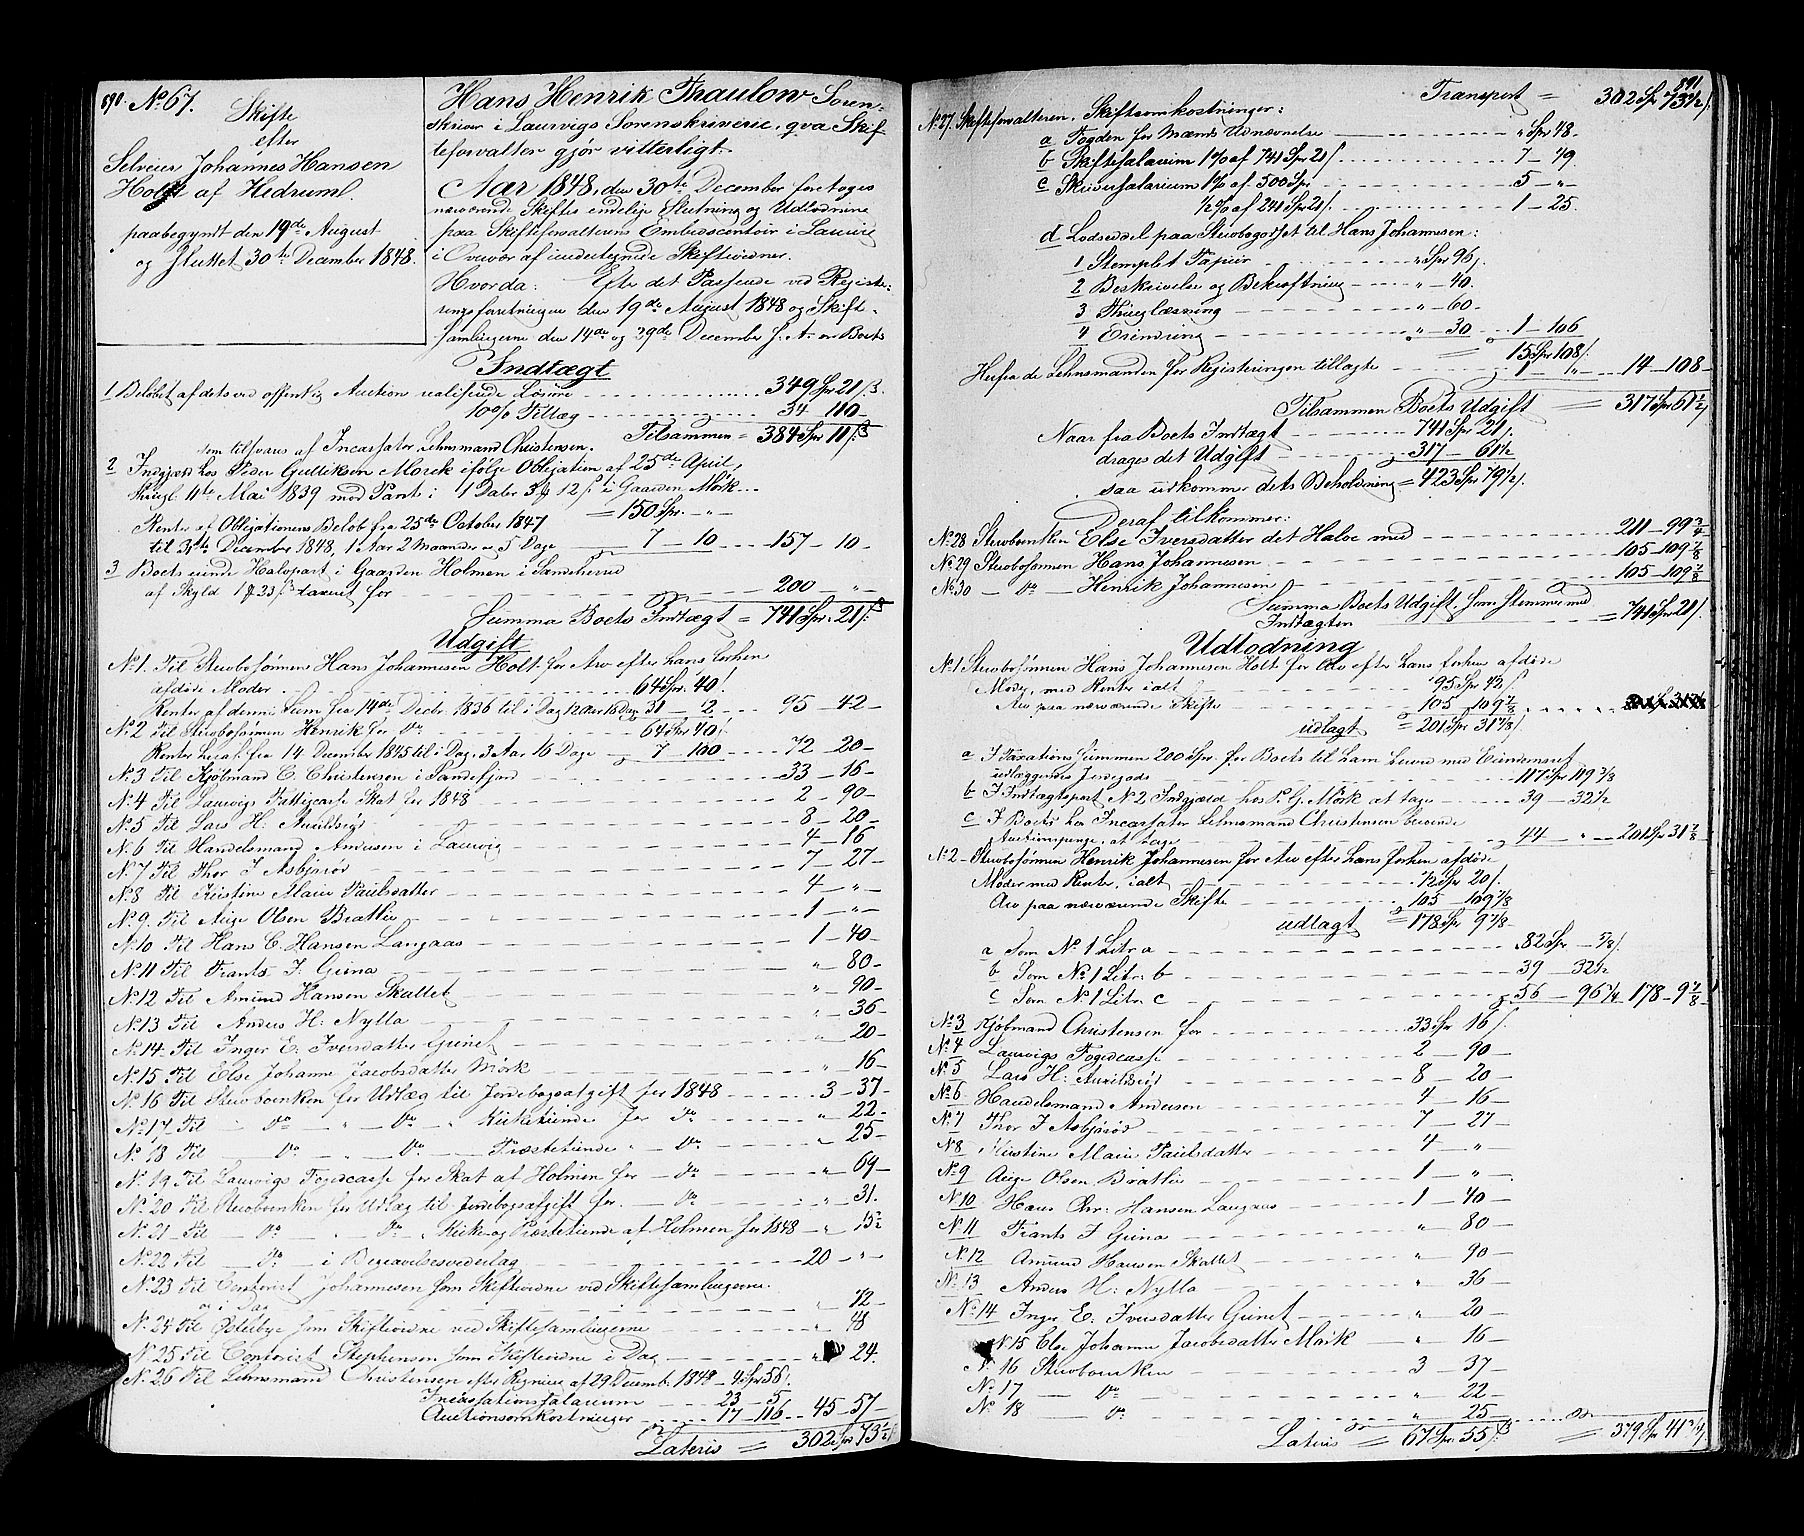 890.
No 67.
Skifte
efter
Selveier Johannes Hansen
Holt af Hedruml.
paabegyndt den 19de August
og Sluttet 30te December 1848.
Hans Henrik Thaulow Soren-
skriver i Laurvigs Sorenskriverie, qva Skif
teforvalter gjør vitterligt.
Aar 1848, den 30te December foretoges
nærværende Skiftes endelige Slutning og Udlodning
paa Skifteforvalterens Embedscontoir i Laurvig
i Overvær af undertegnede Skiftevidner.
Hvorda: Efter det Passerede ved Registe-
ringsforretningen den 19de August 1848 og Skift-
samlingerne den 14de og 29de December s. A. er Boets
Indtægt
1 Beløbet af dets ved offentlig Auction realiserede Løsøre 349 Spr 21 ß
10% Tillæg 34 - 110 -
Tilsammen = 384 Spr 11 ß
som tilsvares af Incassator, Lehnsmand Christensen.
2 Indgjæld hos Peder Gulliksen Mørck ifølge Obligation af 25de April,
thingl. 11te Mai 1839 med Pant i 1 Daler 3 12 ß i Gaarden Mørk
= 150 Spr. - " -
Renter af Obligationens Beløb fra 25de October 1847
til 31te December 1848, 1 Aar 2 Maaneder 5 Dage 7 - 10 157 - 10 -
3 Boets eiende Halvpart i Gaarden Holmen i Sandeherred
af Skyld 1 23 ß taxeret for 200 - " -
Summa Boets Indtægt = 741 Spr. 21 ß
Udgift
No 1. Til Stervbosønnen Hans Johannesen Holt for Arv efter hans forhen
afdøde Moder 64 Spr. 40 !
Renter af denne Sum fra 14de Decbr 1836 til i Dag 12 Aar 16 Dage 31 - 2 95 - 42 -
No 2 Til Stervbosønnen Henrik for do 64 Spr 40 !
Renter heraf fra 14 December 1845 til i Dag, 3 Aar 16 Dage 7 - 100 72 - 20 -
No 3 Til Kjøbmand C. Christensen i Sandefjord 33 - 16 -
No 4 Til Laurvigs Fattigcasse Skat for 1848 2 - 90 -
No 5 Til Lars H: Auvildsrød 8 - 20 -
No 6 Til Handelsmand Andersen i Laurvig 4 - 16 -
No 7 Til Thor J Asbjørød 7 - 27 -
No 8 Til Kirstine Marie Paulsdatter 4 - " -
No 9. Til Aage Olsen Brattli 1 - " -
No 10 Til Hans C. Hansen Langaas 1 - 40 -
No 11 Til Frants J. Grina " 80 -
No 12 Til Amund Hansen Skallet " - 90 -
No 13 Til Anders H: Nylla " - 36 -
No 14. Til Inger E. Iversdatter Grinet " 20 -
No 15 Til Else Johanne Jacobsdatter Mørk " 16 -
No 16 Til Stervboenken for Udlæg til Jordebogsafgift for 1848 3 - 37 -
No 17 Til - do - " - do - " Kirketiende for do " 22 -
No 18 Til - do - " - do - Præstetiende " do " 25 -
No 19 Til Laurvigs Fogedcasse for Skat af Holmen for - do " 69 -
No 20 Til Stervboenken for Udlæg til Jordebogsafgift for - do " 31.
No 21 Til - do - " do " Kirke og Præstetiende af Holmen for 1848 - " 15½
No 22 Til - do - i Begravelsesvederlag 20 - " -
No 23 Til Contorist Johannesen som Skiftevidne ved Skiftesamlingerne
og i Dag " 72 -
No 24 Til Østerbye som Skiftevidne ved Skiftesamlingerne " 48
No 25 Til Contorist Stephensen som Skiftevidne i Dag " 24.
No 26 Til Lehnsmand Christensen efter Regning af 29 Decemb. 1848 - 4 Spr 56 !
Incassationssalarium 23 - 5
Auctionsomkostninger 17 - 116 45 - 57 -
Lateris = 302 Spr 73½
891
Transport = 302 Spr 73½ ß
No 27. Skifteforvalteren, Skifteomkostninger:
a Fogden for Mænds Udnævnelse " Spr 48 -
b Skiftesalarium 1% af 741 Spr 21 ß 7 - 49.
c Skriversalarium 1% af 500 Spr 5 - " -
½% af 241 Spr 21 ß 1 - 25.
d Lodseddel paa Stervbogodset til Hans Johannesen:
1 Stemplet Papiir " Spr 96 ß
2 Beskrivelse og Bekræftning " - 40.
3 Thinglæsning " - 60 -
4 Erindring " - 30 1 - 106
= 15 Spr 108 ß
Herfra de Lehnsmanden for Registeringen tillagte 1 " 14 - 108 -
Tilsammen Boets Udgift = 317 Spr 61½ ß
Naar fra Boets Indtægt 741 Spr 21 ß
drages det Udgift 317 - 61½
saa udkommer dets Beholdning = 423 Spr 79½ ß
Deraf tilkommer:
No 28 Stervboenken Else Iversdatter det Halve med 211 - 99¾
No 29 Stervbosønnen Hans Johannesen 105 - 109⅞
No 30 - do - Henrik Johannesen 105 - 109⅞
Summa Boets Udgift, som Stemmer med
Indtægten = 741 Spr 21 ß
Udlodning
No 1 Stervbosønnen Hans Johannesen Holt for Arv efter hans forhen afdøde
Moder, med Renter ialt 95 Spr 42 ß
Arv paa nærværende Skifte 105 - 109⅞
udlagt = 201 Spr 31⅞ ß
a I Taxations Summen 200 Spr for Boets til ham herved med Eiendomsret
udlæggende Jordegods 117 Spr 119⅜
b I Indtægtspost No 2 Indgjæld hos P. G. Mörk at tage 39 - 32½
c I Boets hos Incassator Lehnsmand Christensen beroende
Auctionspenge, at tage 44 " 201 Spr 31⅞
No 2 - Stervbosønnen Henrik Johannesen for Arv efter hans forhen afdøde
Moder med Renter, ialt 72 Spr 20 ß
Arv paa nærværende Skifte 105 - 109⅞
udlagt = 178 Spr 9⅞
a Som No 1 Litr a 82 Spr - ⅝ ß
b Som No 1 Litr: b 39 32½
c Som No 1 Litr. c 56 - 96¾ 178 - 9⅞
No 3 Kjøbmand Christensen for 33 Spr 16 ß
No 4 Laurvigs Fogedcasse 2 - 90 -
No 5 Lars H: Auvildsrød 8 - 20 -
No 6 Handelsmand Andersen 4 - 16 -
No 7 Thor J Asbjørød 7 - 27 -
No 8 Kirstine Marie Paulsdatter 4 - " -
No 9 Aage Olsen Brattli 1 - " -
No 10 Hans Chr: Hansen Langaas 1 - 40 -
No 11 Frants J Grina " - 80 -
No 12 Amund Hansen Skallet " - 90 -
No 13 Anders H: Nylla " 36 -
No 14 Inger E. Iversdatter Grinet " 20 -
No 15 Else Johanne Jacobsdatter Mørk " 16 -
No 16 Stervboenken 3 - 37 -
No 17 - do " - 22 -
No 18 - do " 25 -
Lateris = 67 Spr. 55 ß = 379 Spr 41¾ ß